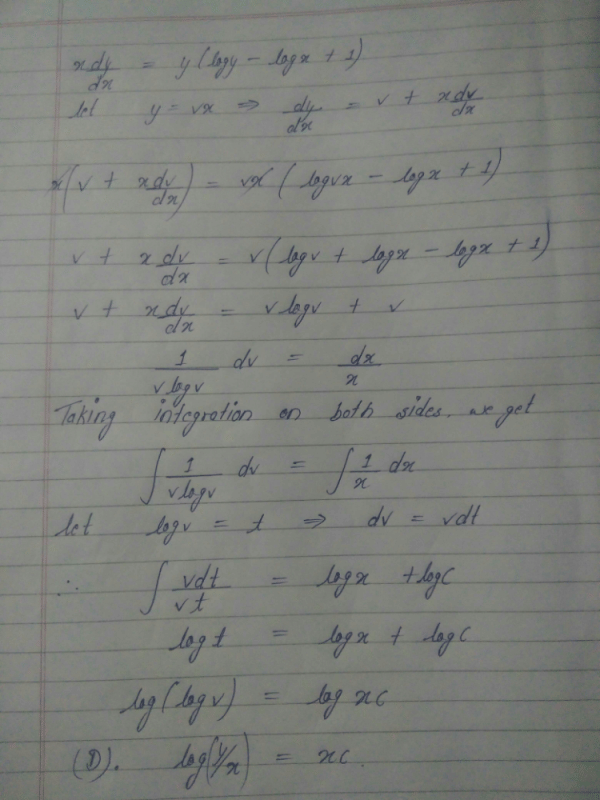 x dy/dx = y(logy - logx + 1)
let y = vx ⇒ dy/dx = v + x dv/dx
x(v + x dv/dx) = vx (logvx - logx + 1)
v + x dv/dx = v(logv + logx - logx + 1)
v + x dv/dx = v logv + v
1/(v logv) dv = dx/x
Taking integration on both sides, we get
∫ 1/(v logv) dv = ∫ 1/x dx
let logv = t ⇒ dv = vdt
∴ ∫ vdt/vt = logx + logC
logt = logx + logC
log(logv) = log xc
(D). log(y/x) = xc.